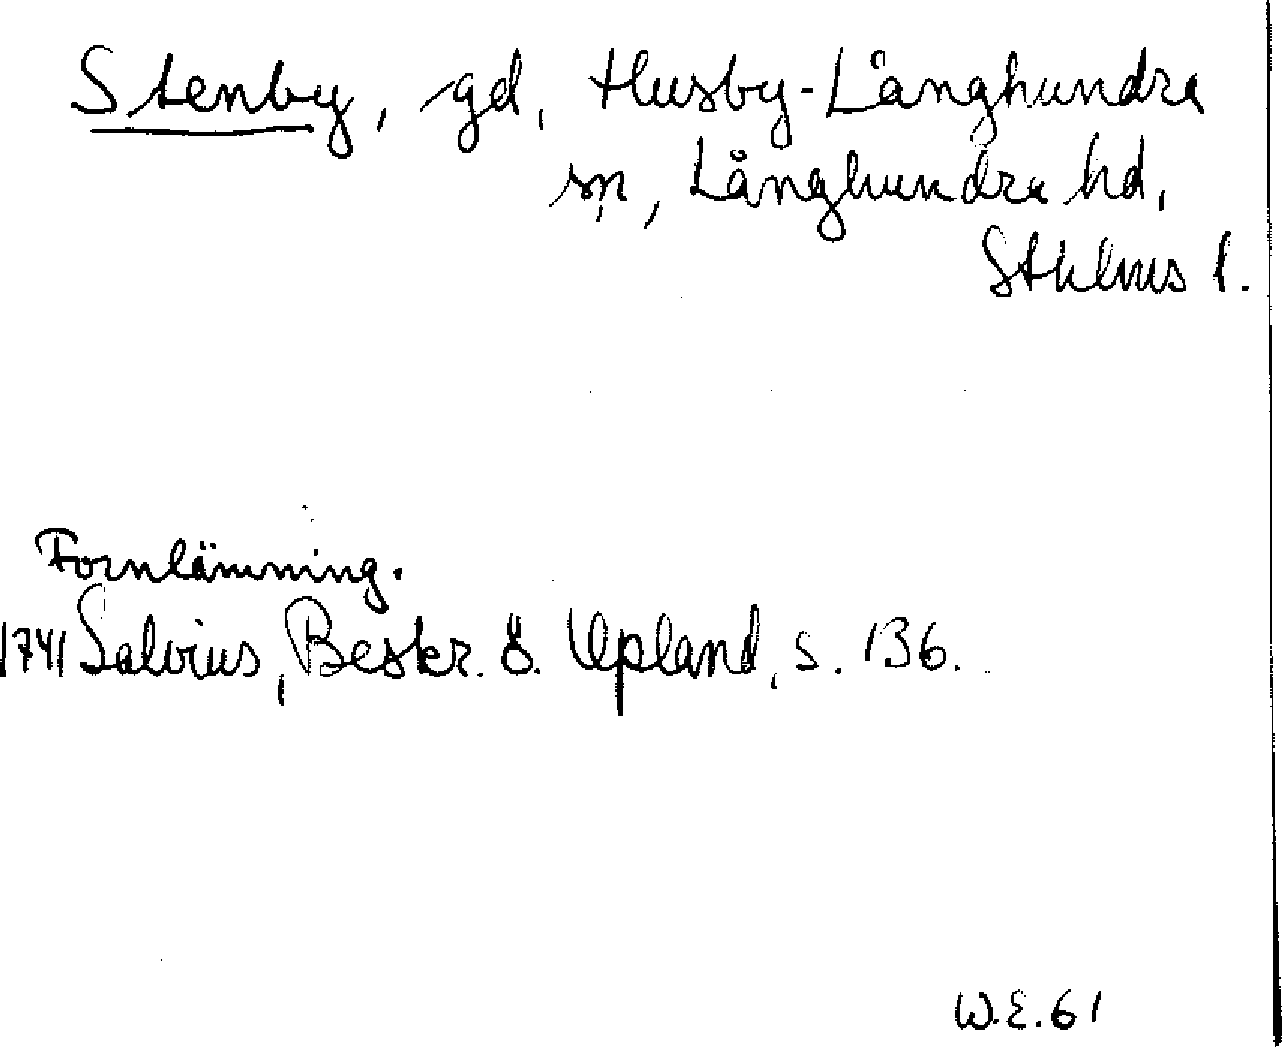 Stenby, gd, Husby-Långhundra
sn, Långhundra hd,
Sthlms l.
Fornlämning.
1741 Salvius, Beskr. ö. Upland, s. 136.
W.E. 61